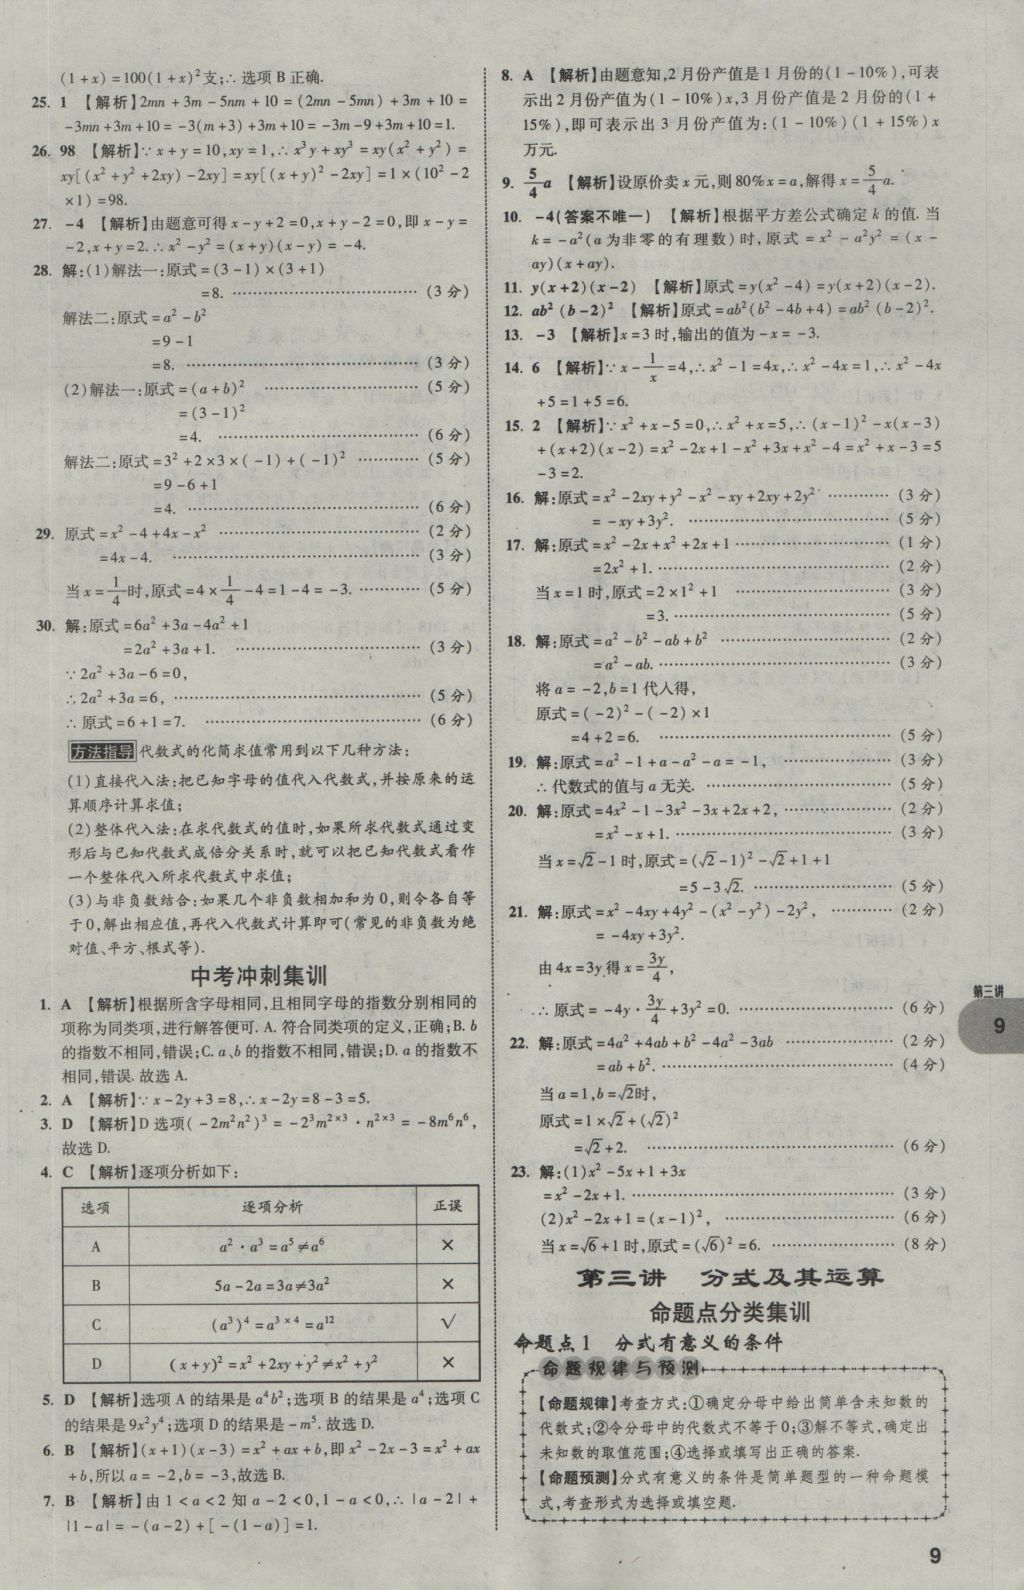 (1+x)=100(1+x)²支;∴选项B正确.
25. 1 【解析】2mn+3m-5nm+10=(2mn-5mn)+3m+10=
-3mn+3m+10=-3(m+3)+3m+10=-3m-9+3m+10=1.
26. 98 【解析】∵x+y=10,xy=1,∴x³y+xy³=xy(x²+y²)=
xy[(x²+y²+2xy)-2xy]=xy[(x+y)²-2xy]=1×(10²-2
×1)=98.
27. -4 【解析】由题意可得x-y+2=0,x+y-2=0,即x-y=
-2,x+y=2.∴x²-y²=(x+y)(x-y)=-4.
28. 解:(1)解法一:原式=(3-1)×(3+1)
=8. ………………………………(3分)
解法二:原式=a²-b²
=9-1
=8. ………………………………(3分)
(2)解法一:原式=(a+b)² …………………(5分)
=(3-1)²
=4. ………………………………(6分)
解法二:原式=3²+2×3×(-1)+(-1)² …………(5分)
=9-6+1
=4. ………………………………(6分)
29. 原式=x²-4+4x-x² …………………………(2分)
=4x-4. ………………………………(3分)
当x=1/4时,原式=4×1/4-4=1-4=-3. …………(5分)
30. 解:原式=6a²+3a-4a²+1
=2a²+3a+1. …………………………(3分)
∵2a²+3a-6=0,
∴2a²+3a=6, ………………………………(5分)
∴原式=6+1=7. …………………………(6分)
方法指导 代数式的化简求值常用到以下几种方法:
(1)直接代入法:把已知字母的值代入代数式,并按原来的运
算顺序计算求值;
(2)整体代入法:在求代数式的值时,如果所求代数式通过变
形后与已知代数式成倍分关系时,就可以把已知代数式看作
一个整体代入所求代数式中求值;
(3)与非负数结合:如果几个非负数相加和为0,则令各自等
于0,解出相应值,再代入代数式计算即可(常见的非负数为绝
对值、平方、根式等).
中考冲刺集训
1. A 【解析】根据所含字母相同,且相同字母的指数分别相同的
项称为同类项,进行解答便可.A.符合同类项的定义,正确;B.b
的指数不相同,错误;C.a、b的指数不相同,错误;D.a的指数不
相同,错误.故选A.
2. A 【解析】∵x-2y+3=8,∴x-2y=8-3=5.
3. D 【解析】D选项(-2m²n²)³=-2³m²ˣ³·n²ˣ³=-8m⁶n⁶,
故选D.
4. C 【解析】逐项分析如下:
选项 逐项分析 正误
A a²·a³=a⁵≠a⁶ ×
B 5a-2a=3a≠3a² ×
C (a³)⁴=a³ˣ⁴=a¹² √
D (x+y)²=x²+2xy+y²≠x²+y² ×
5. D 【解析】选项A的结果是a⁴b²;选项B的结果是a⁴;选项C
的结果是9x²y⁴;选项D的结果是-m⁵.故选D.
6. B 【解析】(x+1)(x-3)=x²+ax+b,即x²-2x-3=x²+ax
+b,所以a=-2,b=-3,故选B.
7. B 【解析】由1<a<2知a-2<0,1-a<0,∴|a-2|+
|1-a|=-(a-2)+[-(1-a)]=1.
8. A 【解析】由题意知,2月份产值是1月份的(1-10%),可表
示出2月份产值为(1-10%)x,3月份产值是2月份的(1+
15%),即可表示出3月份产值为:(1-10%)(1+15%)x
万元.
9. 5/4a 【解析】设原价卖x元,则80%x=a,解得x=5/4a.
10. -4(答案不唯一) 【解析】根据平方差公式确定k的值.当
k=-a²(a为非零的有理数)时,原式=x²-a²y²=(x-
ay)(x+ay).
11. y(x+2)(x-2) 【解析】原式=y(x²-4)=y(x+2)(x-2).
12. ab²(b-2)² 【解析】原式=ab²(b²-4b+4)=ab²(b-2)².
13. -3 【解析】x=3时,输出的值为-x=-3.
14. 6 【解析】∵x-1/x=4,∴x²-1=4x,∴x²-4x=1,∴x²-4x
+5=1+5=6.
15. 2 【解析】∵x²+x-5=0,∴x²+x=5,∴(x-1)²-x(x-3)
+(x+2)(x-2)=x²-2x+1-x²+3x+x²-4=x²+x-3=5
-3=2.
16. 解:原式=x²-2xy+y²-x²-xy+2xy+2y² …………(3分)
=-xy+3y². …………………………(5分)
17. 解:原式=x²-2x+x²+2x+1 …………………(1分)
=2x²+1. ………………………………(2分)
当x=1时,原式=2×1²+1 …………………(3分)
=3. ………………………………(5分)
18. 解:原式=a²-b²-ab+b² ……………………(2分)
=a²-ab. ………………………………(3分)
将a=-2,b=1代入得,
原式=(-2)²-(-2)×1
=4+2=6. ………………………………(5分)
19. 解:原式=a²-1+a-a²-a=-1, ……………(3分)
∴代数式的值与a无关. ………………………(5分)
20. 解:原式=4x²-1-3x²-3x+2x+2, ……………(2分)
=x²-x+1. ……………………………(3分)
当x=√2-1时,原式=(√2-1)²-√2+1+1
=5-3√2. …………………(5分)
21. 解:原式=x²-4xy+4y²-(x²-y²)-2y², …………(2分)
=-4xy+3y².
由4x=3y得x=3y/4,
∴原式=-4y·3y/4+3y²=0. …………………(6分)
22. 解:原式=4a²+4ab+b²-4a²-3ab ……………(2分)
=ab+b². ………………………………(4分)
当a=1,b=√2时,
原式=1×√2+(√2)²
=√2+2. ………………………………(6分)
23. 解:(1)x²-5x+1+3x
=x²-2x+1. ………………………………(3分)
(2)x²-2x+1=(x-1)², ……………………(6分)
当x=√6+1时,原式=(√6)²=6. ………………(8分)
第三讲 分式及其运算
命题点分类集训
命题点1 分式有意义的条件
命题规律与预测
【命题规律】考查方式:①确定分母中给出简单含未知数的
代数式;②令分母中的代数式不等于0;③解不等式,确定出
未知数的取值范围;④选择或填写出正确的答案.
【命题预测】分式有意义的条件是简单题型的一种命题模
式,考查形式为选择或填空题.
第三讲
9
9